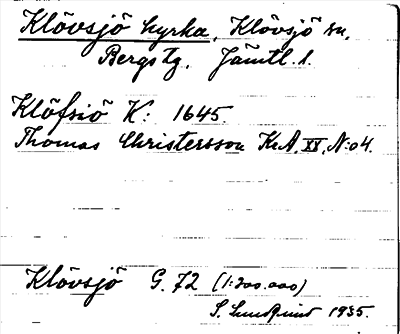 Klövsjö kyrka, Klövsjö sn,
Bergs tg. Jämtl. l.
Klöfsiö K: 1645.
Thomas Christersson K.A. XV. N:o 4.
Klövsjö G. 72 (1:200.000)
S. Lundquist 1935.